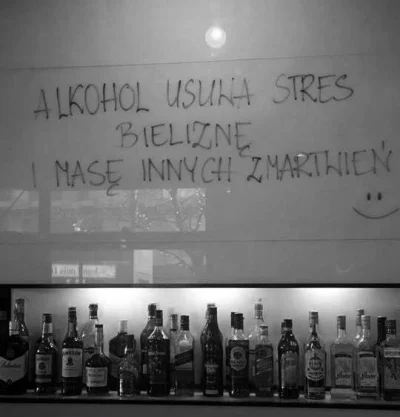 ALKOHOL USUWA STRES
BIELIZNĘ
I MASĘ INNYCH ZMARTWIEŃ